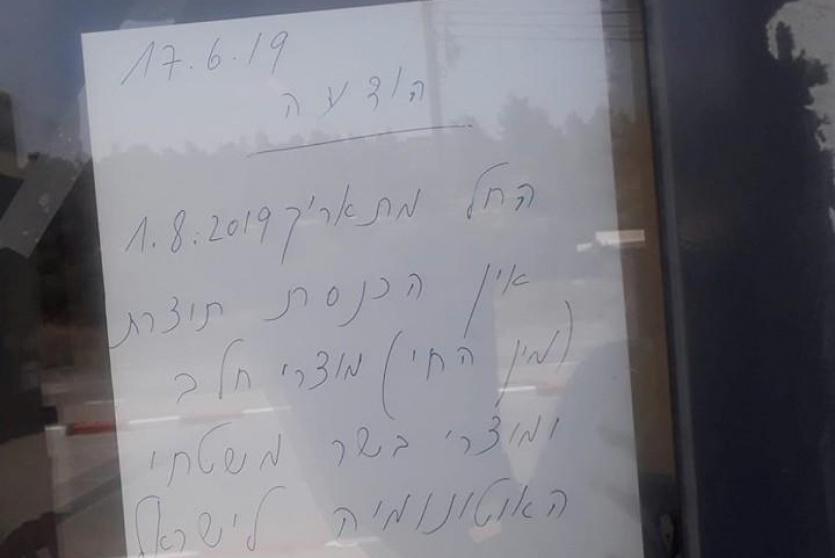 17.6.19
הודעה
החל מתאריך 1.8.2019
אין הכנסת תוצרת
(מין החי) מוצרי חלב
ומוצרי בשר משטחי
האוטונומיה לישראל